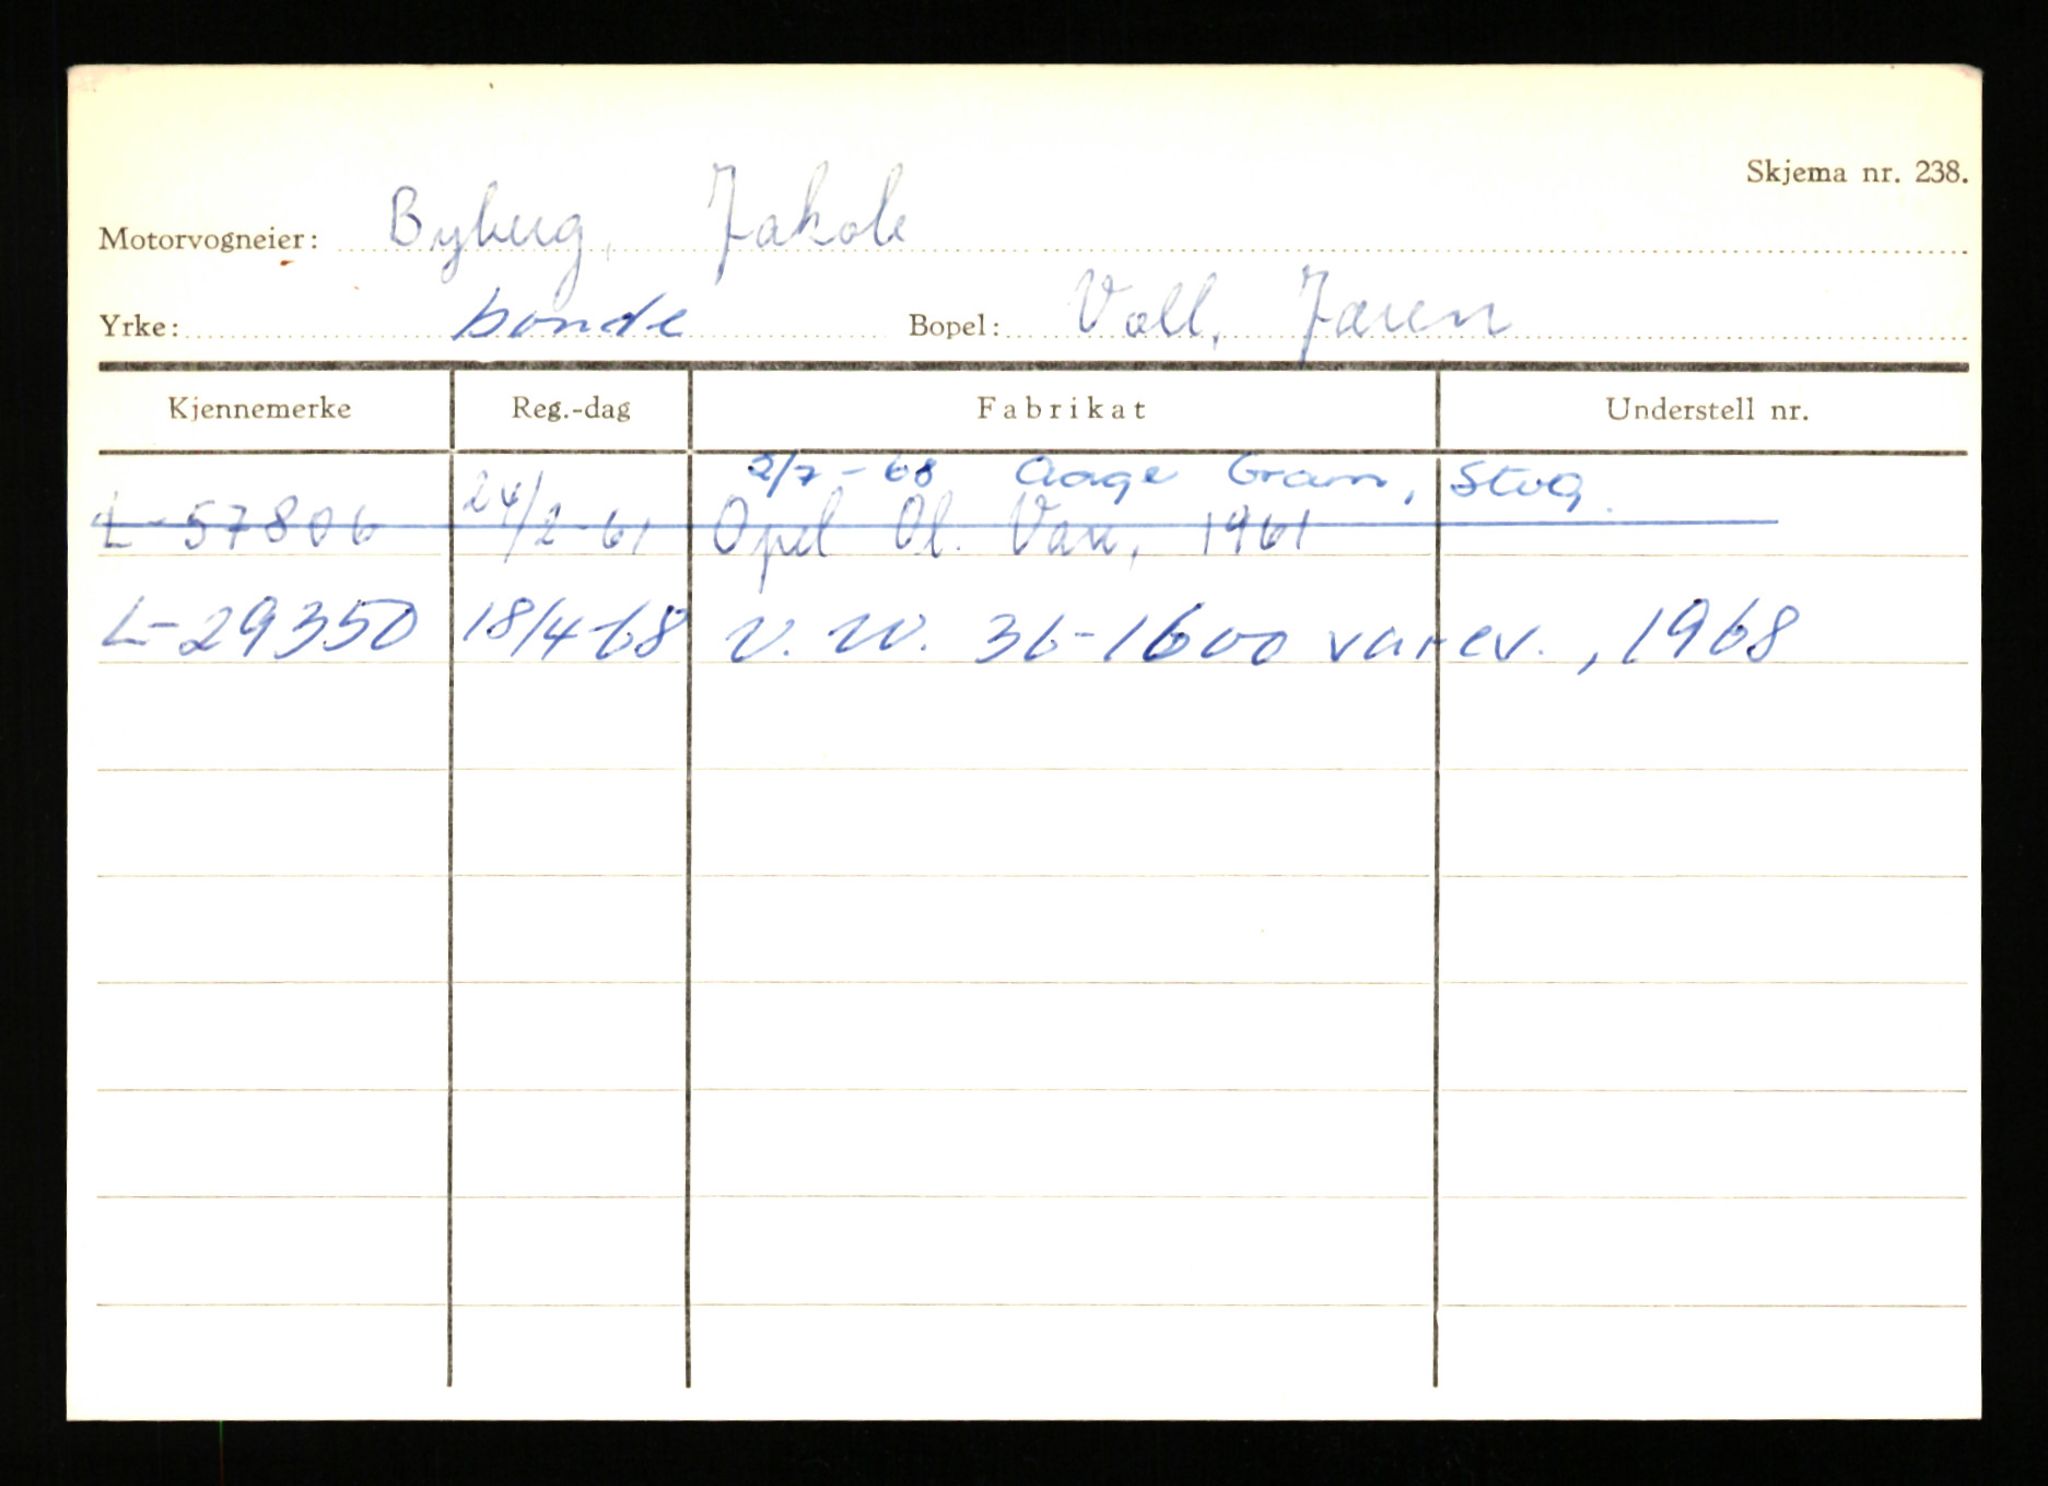 Skjema nr. 238.
Motorvogneier: Byberg, Jakob
Yrke: bonde Bopel: Voll, Jæren
Kjennemerke Reg.-dag Fabrikat Understell nr.
2/7-68 Aage Gram, Stvg.
L-57806 24/2-61 Opel Ol. Vare, 1961
L-29350 18/4-68 V.W. 36-1600 varev., 1968